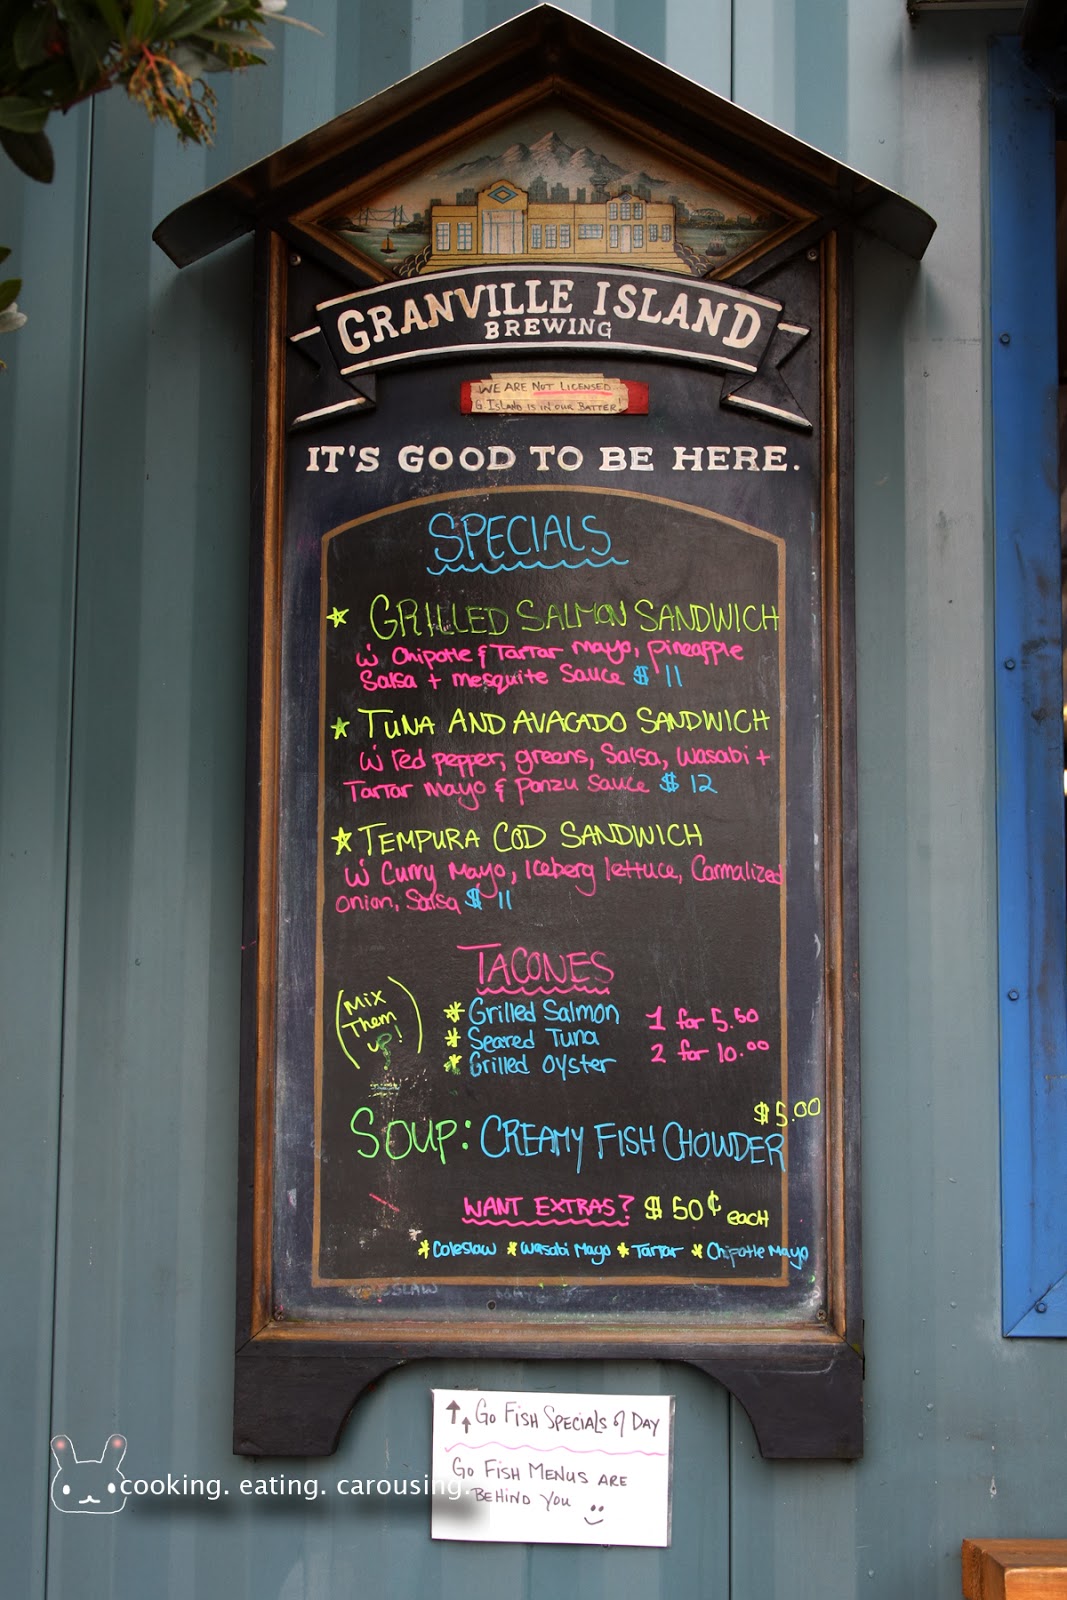 GRANVILLE ISLAND
BREWING
WE ARE NOT LICENSED
G ISLAND IS IN OUR BATTER!
IT'S GOOD TO BE HERE.
SPECIALS
GRILLED SALMON SANDWICH
w/ Chipotle & Tartar Mayo, pineapple
Salsa + mesquite Sauce $ 11
TUNA AND AVACADO SANDWICH
w/ red pepper, greens, Salsa, wasabi +
Tartar Mayo & ponzu Sauce $ 12
TEMPURA COD SANDWICH
w/ Curry Mayo, Iceberg lettuce, Carmalized
onion, Salsa $ 11
TACONES
(Mix
Them
up!)
* Grilled Salmon
* Seared Tuna
* Grilled oyster
1 for 5.50
2 for 10.00
$5.00
SOUP: CREAMY FISH CHOWDER
WANT EXTRAS? $ 50¢ each
* Coleslaw * Wasabi Mayo * Tartar * Chipotle Mayo
↑↑ GO FISH SPECIALS of DAY
GO FISH MENUS ARE
BEHIND YOU
cooking. eating. carousing.